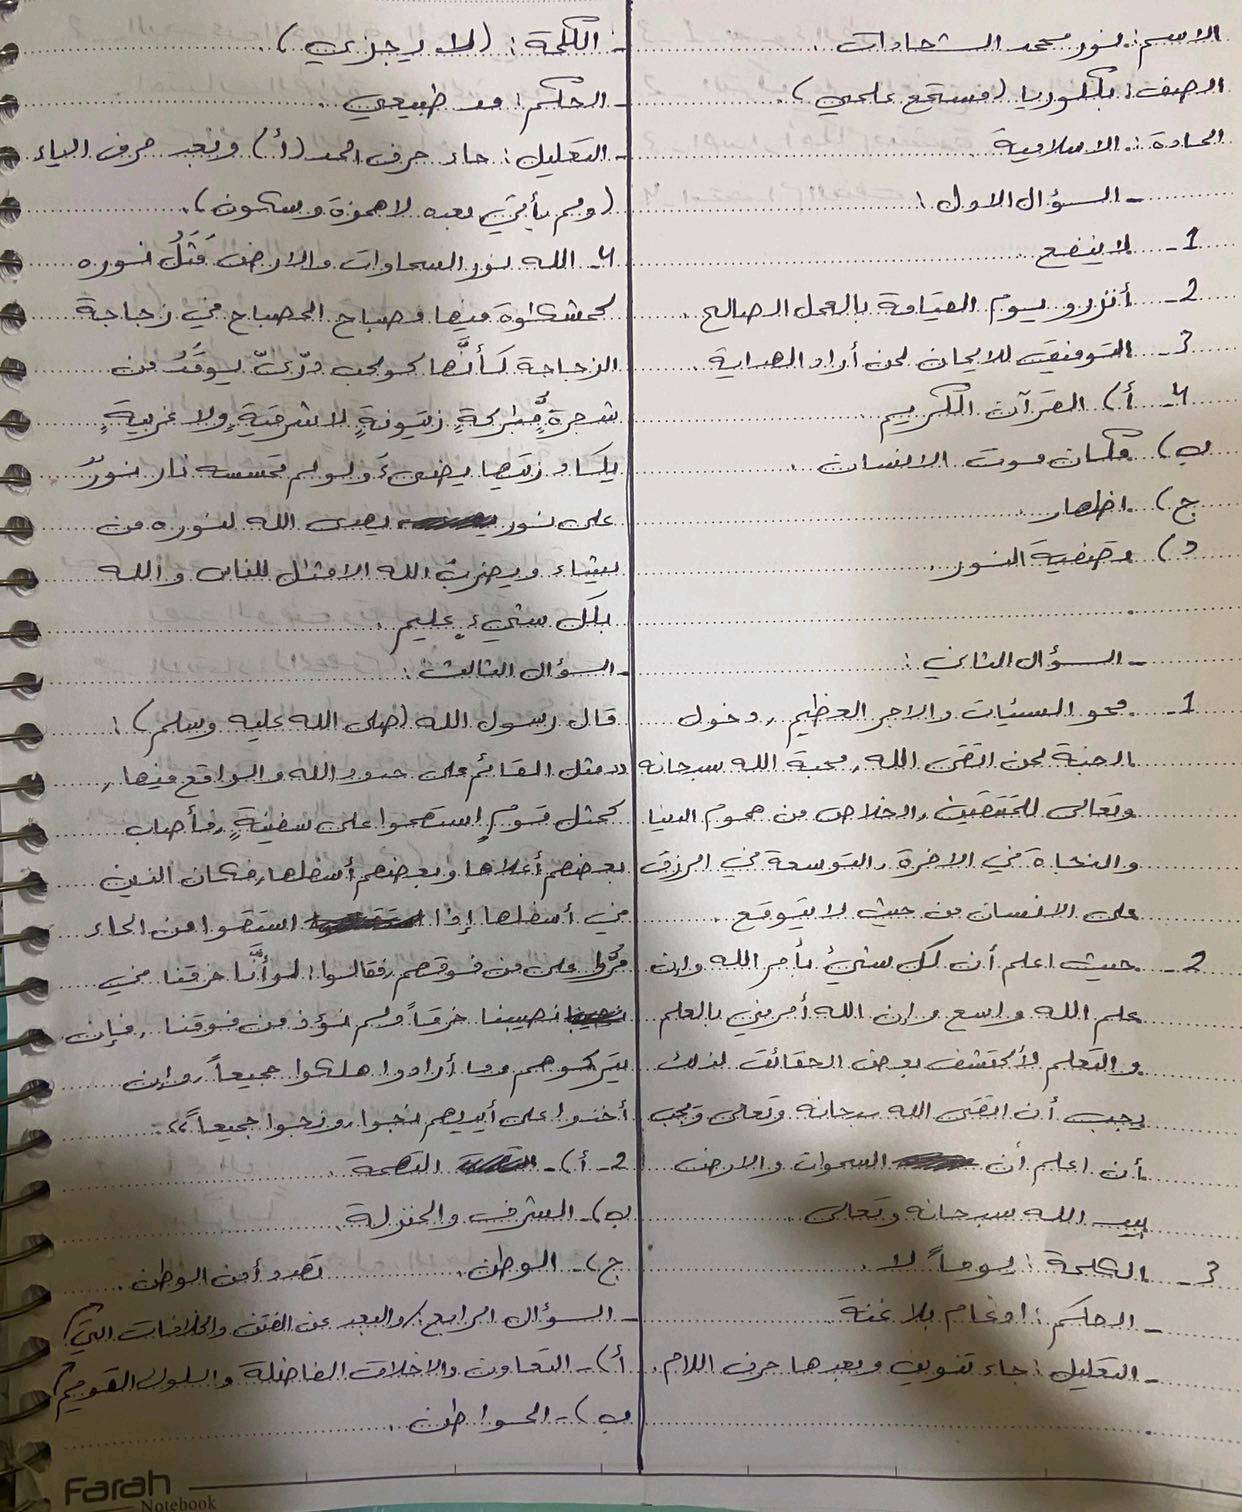 الاسم: نور محمد الشحادات.
الصف: بكلوريا (مستجمع علمي).
المادة: الاسلامية
- السؤال الاول:
1- لا ينفع
2- أنزرو يوم القيامة بالعمل الصالح.
3- التوفيق للايمان لمن أراد الهداية.
4- أ) القرآن الكريم.
ب) مكان موت الانسان.
ج) اظهار.
د) وصفية النور.
- السؤال الثاني:
1- محو السيئات والاجر العظيم، دخول
الجنة لمن اتقى الله، محبة الله سبحانه
وتعالى للمتقين، الاخلاص من هموم الدنيا
والنجاة في الاخرة، التوسعة في الرزق
على الانسان من حيث لا يتوقع.
2- حيث اعلم أن كل شيئ بأمر الله وان
علم الله واسع وان الله أمرني بالعلم
والتعلم لأكتشف بعض الحقائق لذلك
يجب أن اتقى الله سبحانه وتعالى ويجب
أن اعلم أن السموات والارض
بيد الله سبحانه وتعالى.
3- الكلمة: يوماً لا.
- الحكم: ادغام بلا غنة
- التعليل: جاء تنوين وبعدها حرف اللام.
- الكلمة: (لا يجزي).
- الحكم: مد طبيعي.
- التعليل: جاء حرف المد (أ) وبعد حرف الياء
(ولم يأتي بعده لا همزة و سكون).
4- الله نور السماوات والارض مَثَلُ نوره
كمشكوة فيها مصباح المصباح في زجاجة
الزجاجة كأنَّها كوكب درّيّ يوقَدُ من
شجرةٍ مُّبٰركةٍ زيتونةٍ لا شرقيةٍ ولا غربيةٍ
يكاد زيتها يضيءُ ولو لم تمسسه نار نورٌ
على نور يهدى الله لنوره من
يشاء ويضربُ الله الامثٰل للناس والله
بكل شيءٍ عليم.
- السؤال الثالث:
قال رسول الله (صلى الله عليه وسلم):
((مثل القائم على حدود الله والواقع فيها،
كمثل قومٍ استهموا على سفينةٍ، فأصاب
بعضهم أعلاها وبعضهم أسفلها، فكان الذين
في أسفلها إذا استقوا من الماء
مرُّوا على من فوقهم، فقالوا: لو أنَّا خرقنا في
نصيبنا خرقاً ولم نؤذ من فوقنا، فإن
يتركوهم وما أرادوا هلكوا جميعاً، وإن
أخذوا على أيديهم نجوا، ونجوا جميعاً)).
2- أ)- التهمة.
ب)- الشرف والمنزلة.
ج)- الوطن.
- السؤال الرابع: / والبعد عن الفتن والخلافات التي / تهدد أمن الوطن.
أ)- التعاون والاخلاق الفاضلة والسلوك القويم /
ب)- المواطن.
Farah
Notebook